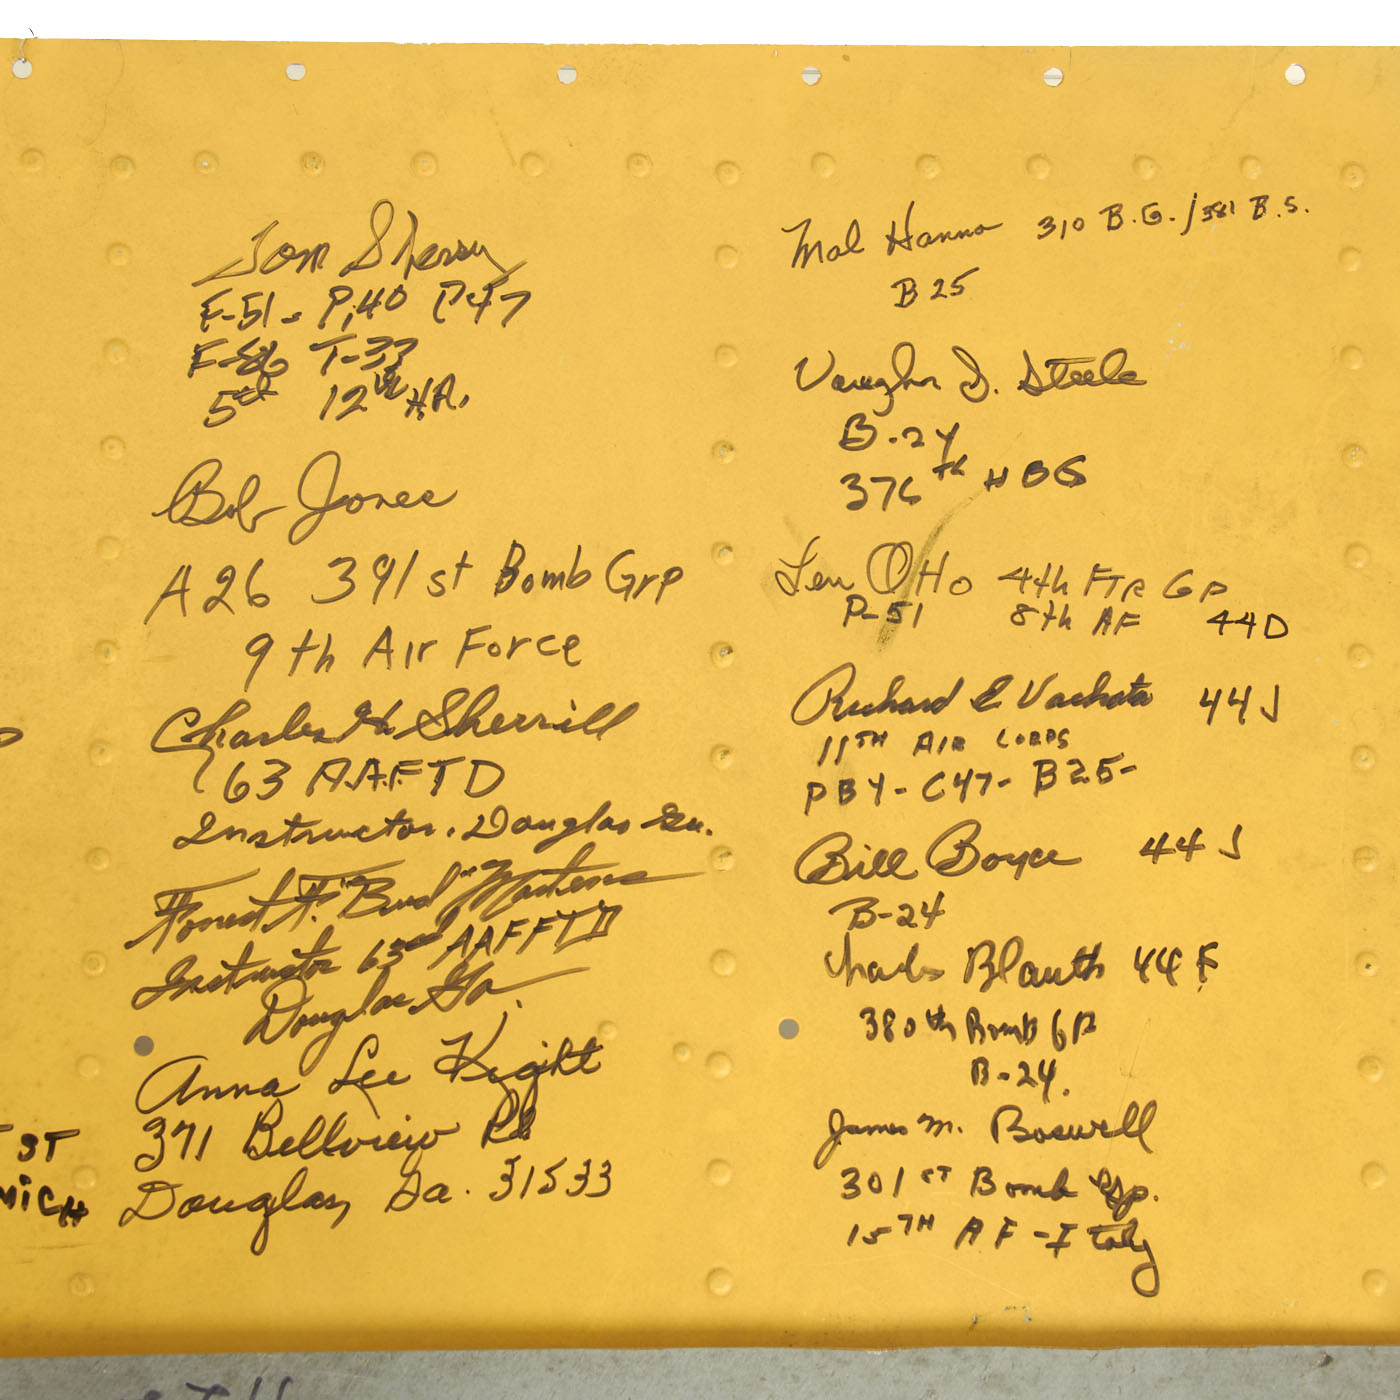 Tom Sherry
F-51 - P,40 P47
F-86 T-33
5th 12th H.A.
Bob Jones
A26 391st Bomb Grp
9th Air Force
Charles H Sherrill
63 A.A.F.T D
Instructor. Douglas Ga.
Forrest F. "Bud" Martens
Instructor 63rd AAFFTD
Douglas Ga.
Anna Lee Kight
371 Bellview Rd
Douglas, Ga. 31533
ST
MICH
Mal Hanna 310 B.G./381 B.S.
B25
Vaughn D. Steele
B-24
376th HBG
Len Otto 4th FTR GP
P-51 8th AF 44D
Richard E Vachata 44J
11TH AIR CORPS
PBY- C47- B25-
Bill Boyce 44J
B-24
Charles Blauth 44F
380th Bomb GP
B-24.
James M. Boswell
301ST Bomb Gp.
15TH AF - Italy